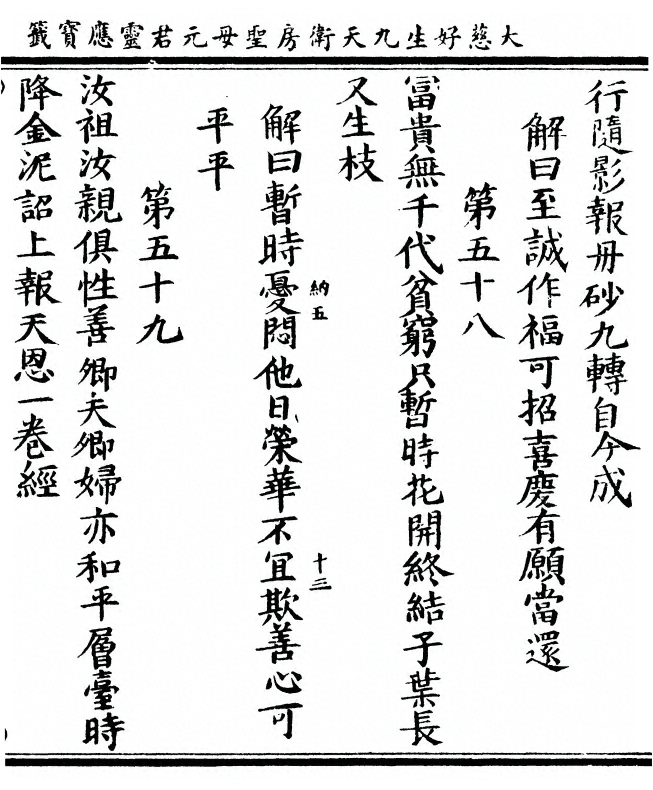 大慈好生九天衛房聖母元君靈應寶籤
行隨影報丹砂九轉自今成
解曰至誠作福可招喜慶有願當還
第五十八
富貴無千代貧窮只暫時花開終結子葉長
又生枝
納五
十三
解曰暫時憂悶他日榮華不宜欺善心可
平平
第五十九
汝祖汝親俱性善卿夫卿婦亦和平層臺時
降金泥詔上報天恩一卷經